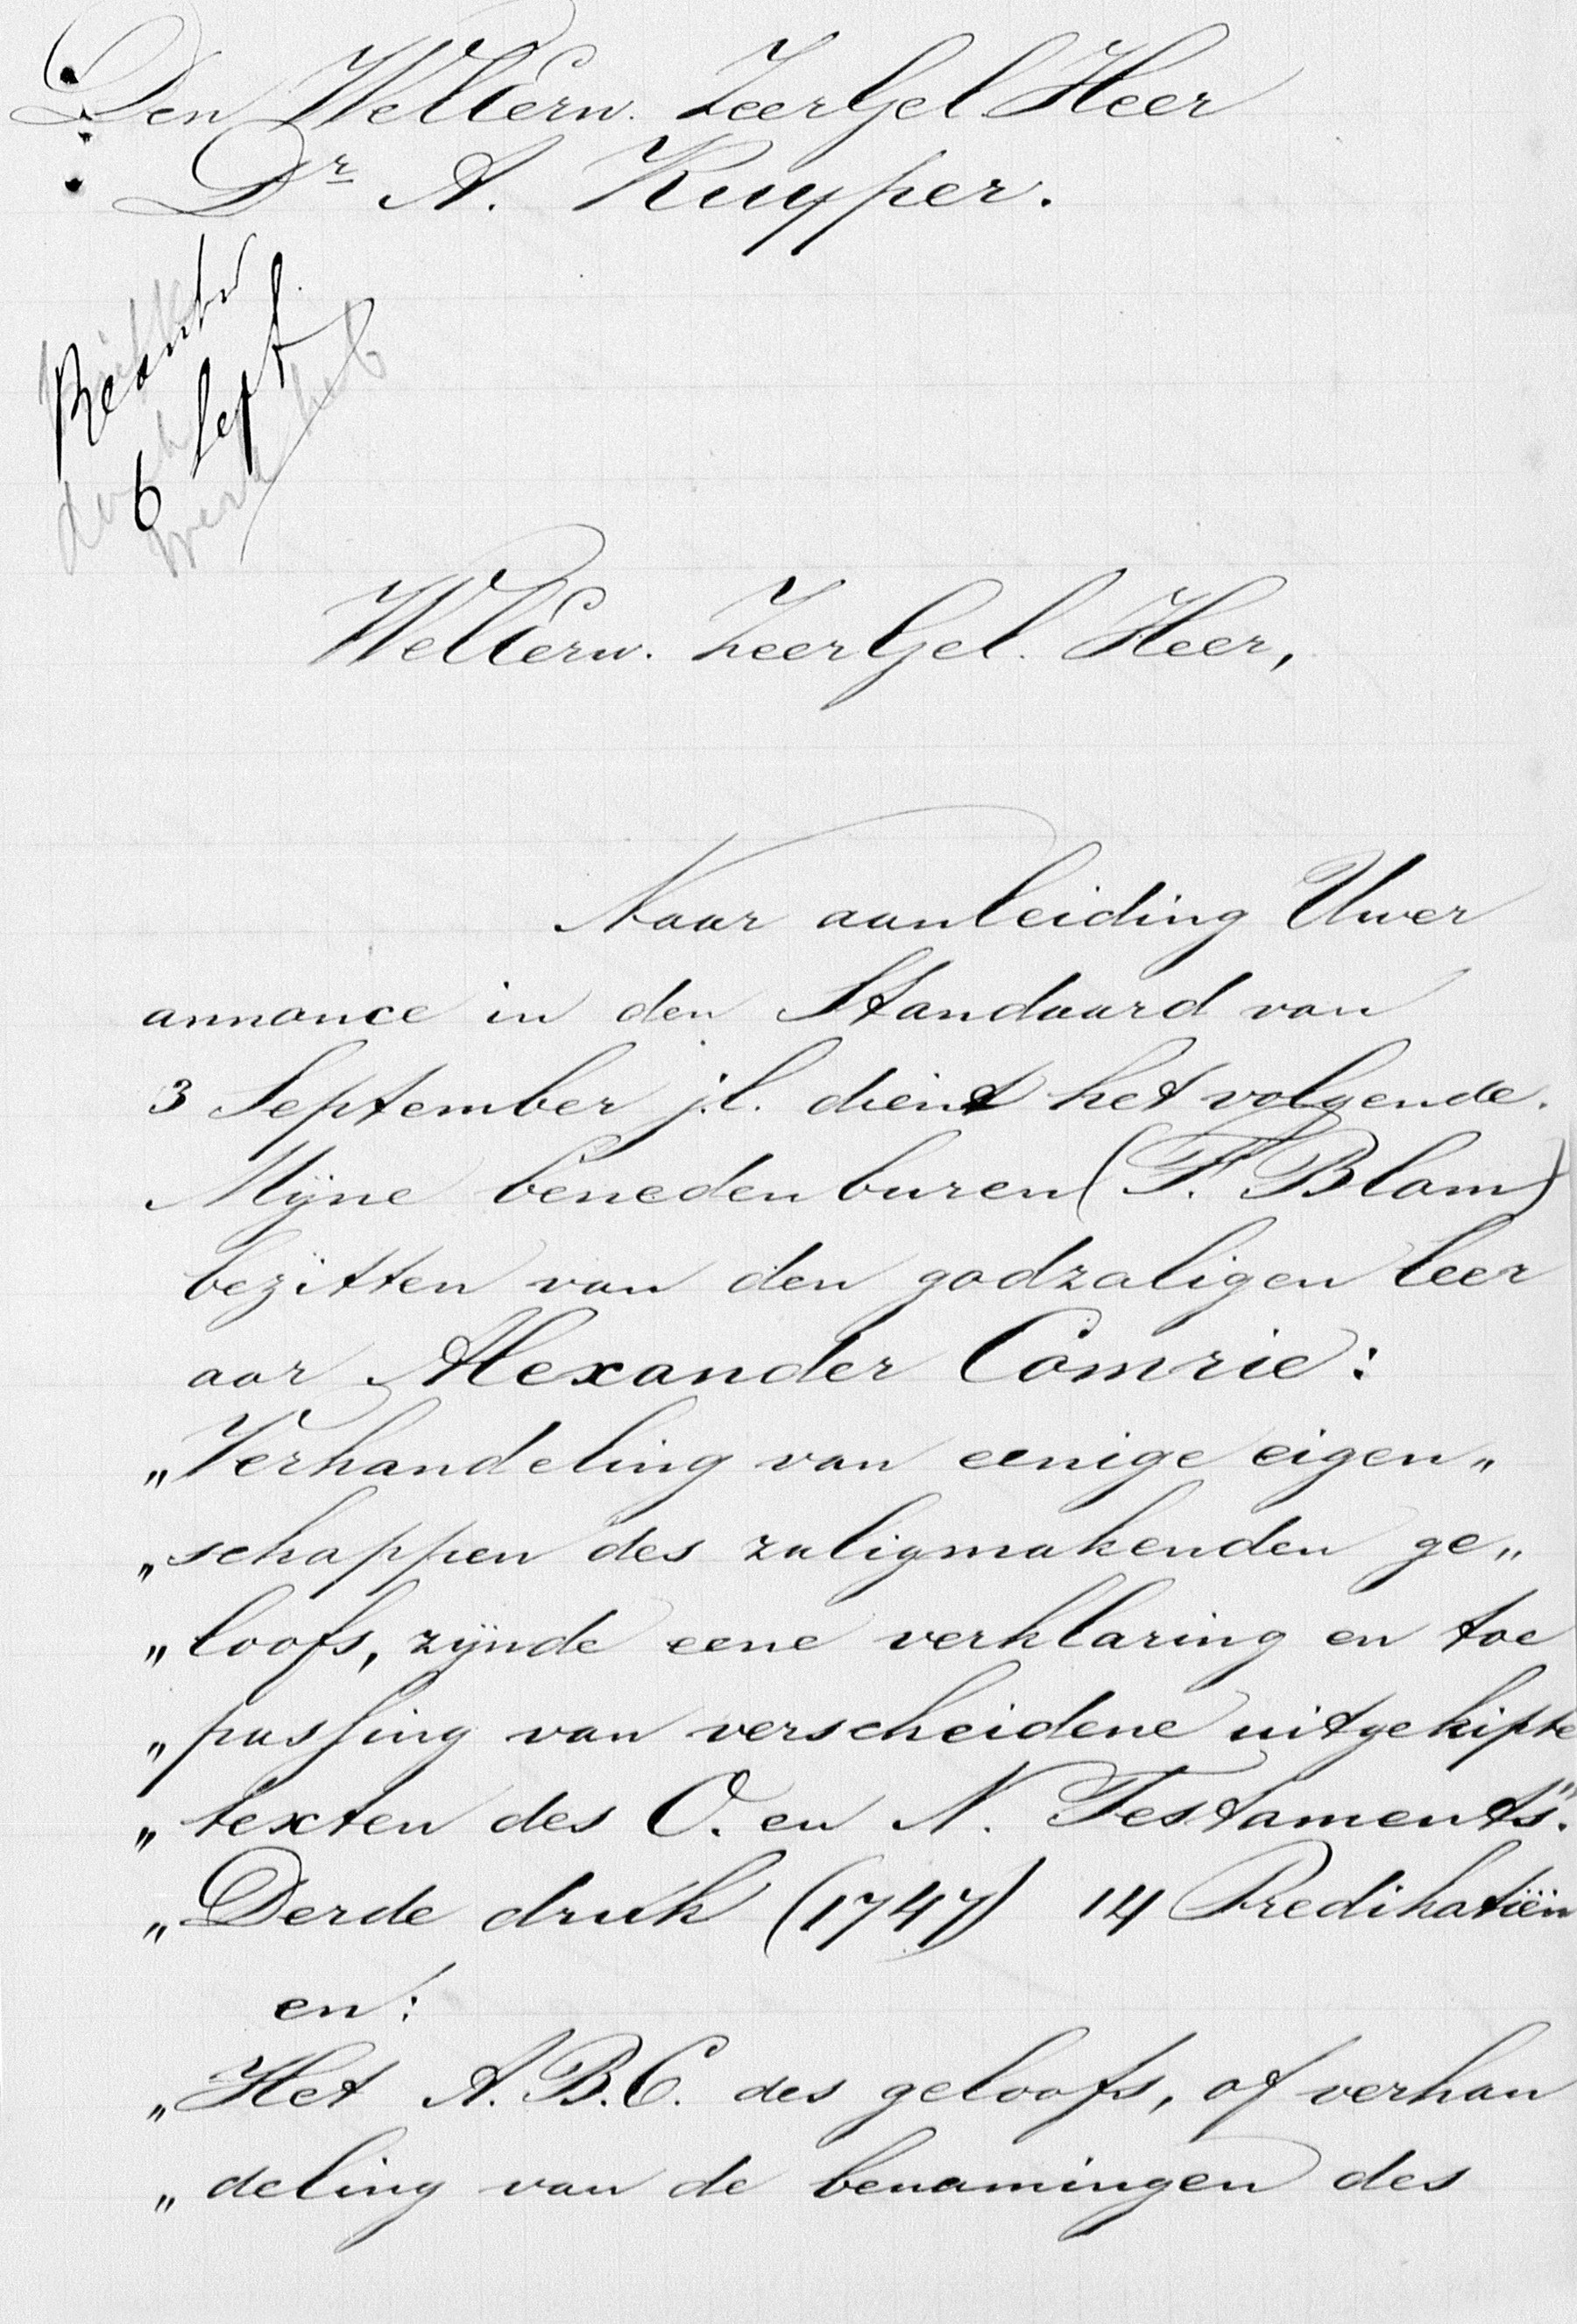 Den WelEerw. ZeerGel. Heer
Dr A. Kuyper.
Beantw
6 Sept
WelEerw. ZeerGel. Heer,
Naar aanleiding Uwer
annonce in den Standaard van
3 September j.l. dient het volgende.
Mijne benedenburen (F. Blom)
bezitten van den godzaligen leer
aar Alexander Comrie:
„Verhandeling van eenige eigen„
„schappen des zaligmakenden ge„
„loofs, zijnde eene verklaring en toe
„passing van verscheidene uitgekipte
„texten des O. en N. Testaments".
„Derde druk (1747) 14 Predikatiën
en:
„Het A.B.C. des geloofs, of verhan
„deling van de benamingen des